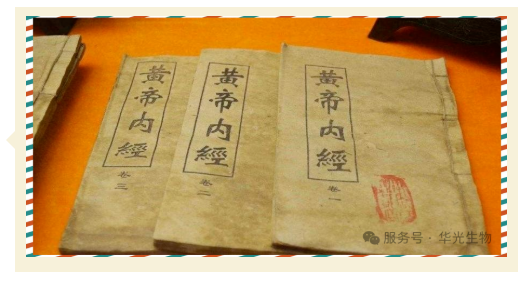 黄帝内經
卷三
黄帝内經
卷二
黄帝内經
卷一
服务号·华光生物